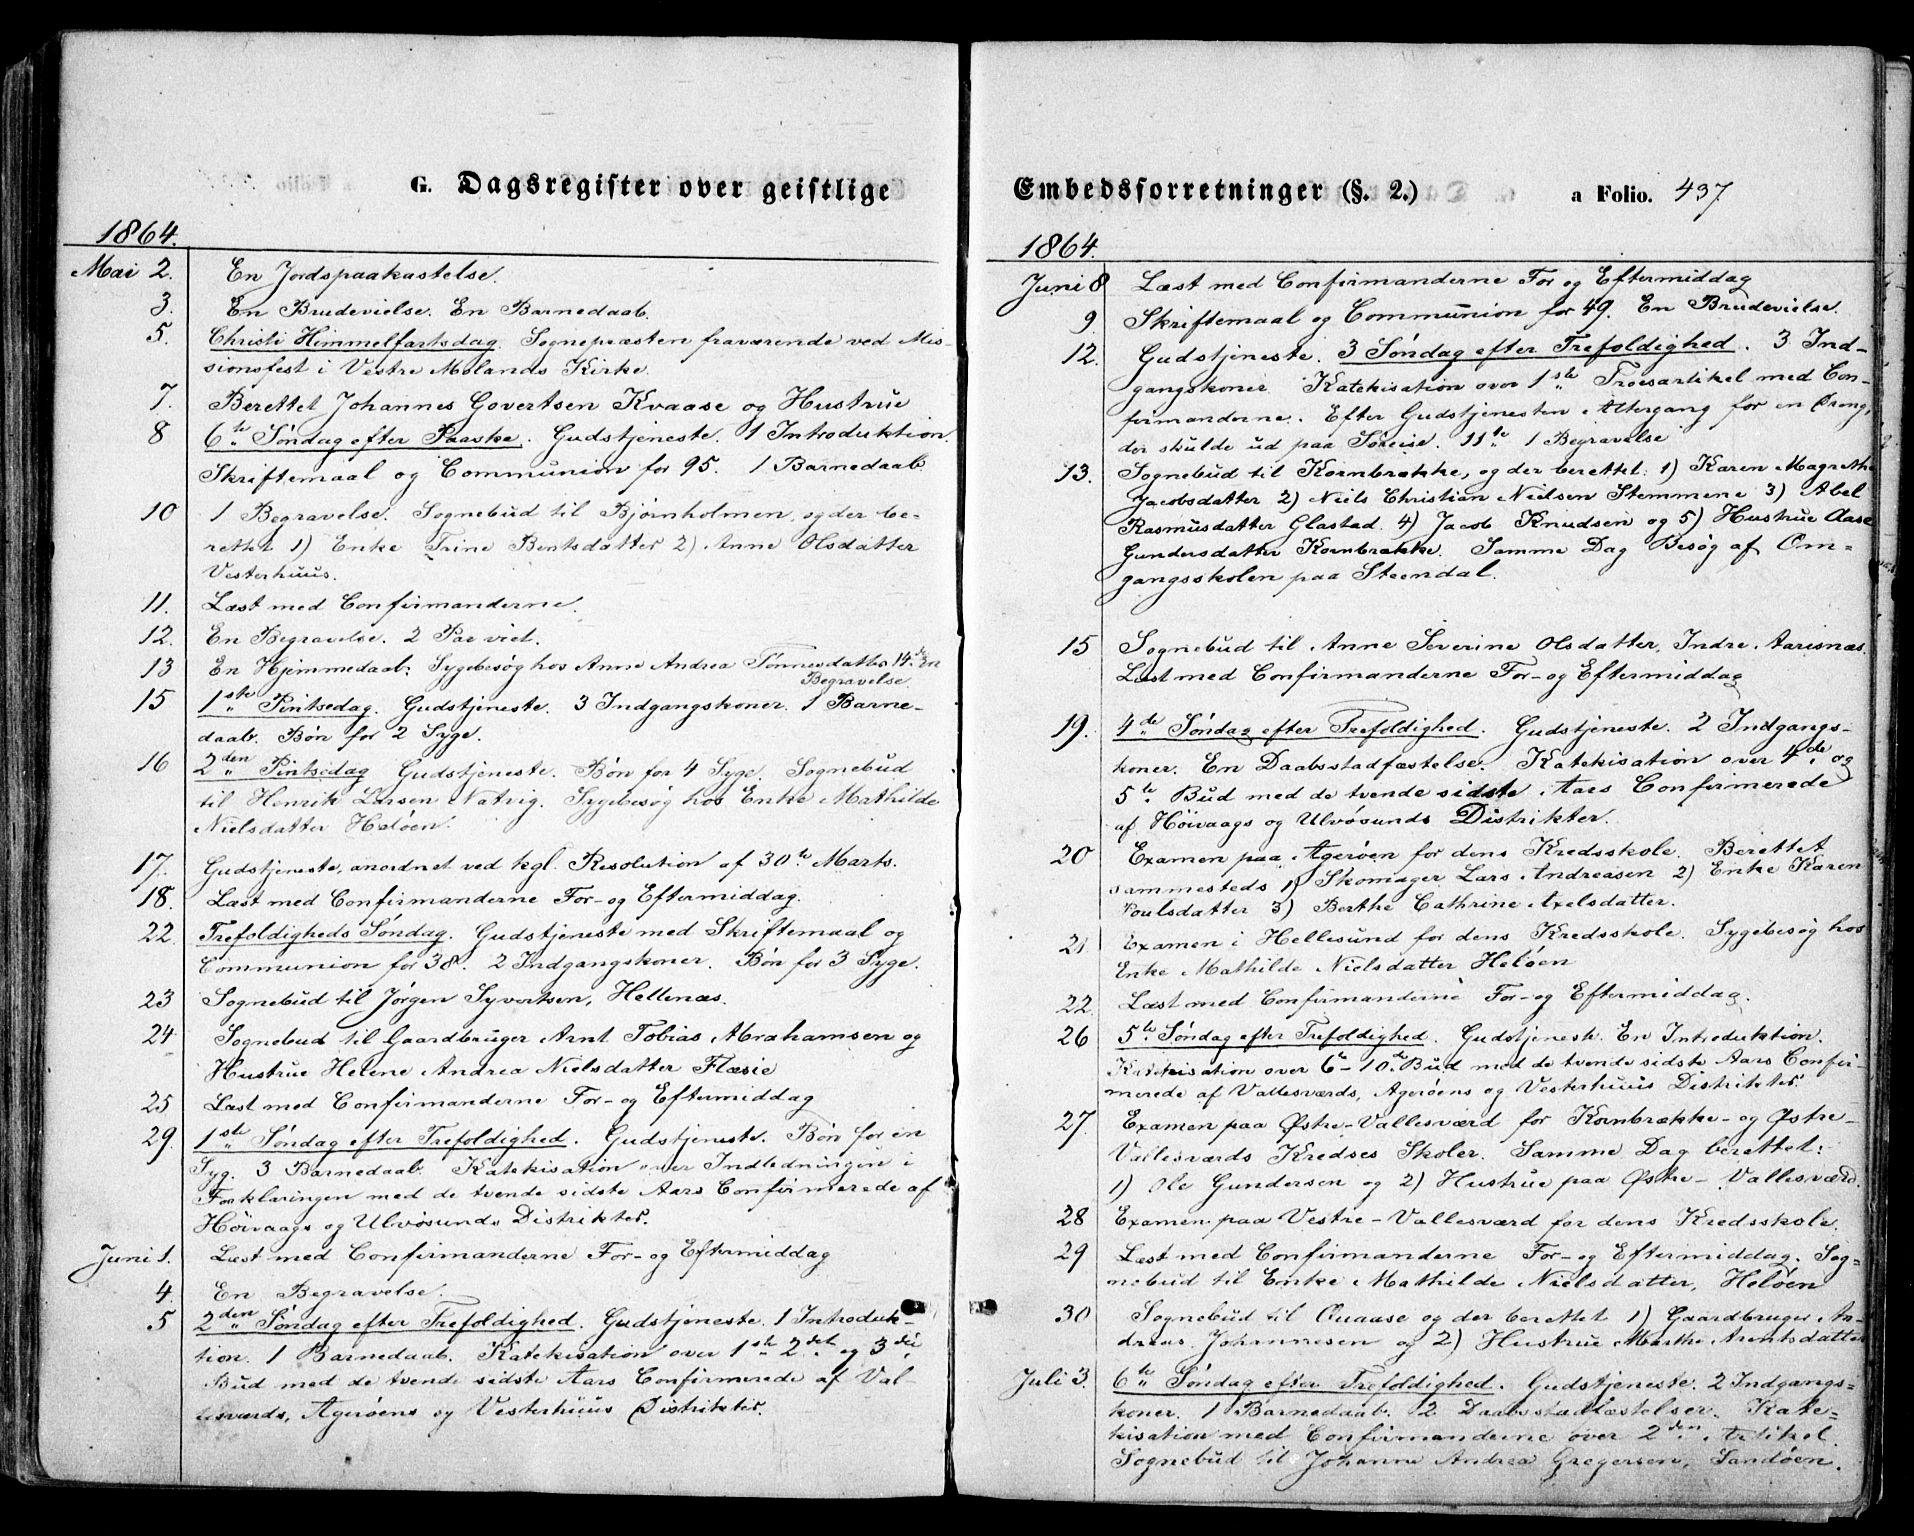 G. Dagsregister over geistlige
1864.
Mai 2. En Jordspaakastelse.
3. En Brudevielse. En Barnedaab.
5. Christi Himmelfartsdag. Sognepræsten fraværende ved Mis-
sionsfest i Vestre Molands Kirke.
7. Berettet Johannes Govertsen Kvaase og Hustrue
8 6te Søndag efter Paaske. Gudstjeneste. 1 Introduktion.
Skriftemaal og Communion for 95. 1 Barnedaab
10 1 Begravelse. Sognebud til Bjørnholmen, og der be-
rettet 1) Enke Trine Bentsdatter 2) Anne Olsdatter
Vesterhuus.
11. Læst med Confirmanderne.
12. En Begravelse. 2 Par viet.
13 En Hjemmedaab. Sygebesøg hos Anne Andrea Tønnesdatter 14de En
Begravelse.
15 1ste Pintsedag. Gudstjeneste. 3 Indgangskoner. 1 Barne-
daab. Bøn for 2 Syge.
16 2den Pintsedag Gudstjeneste. Bøn for 4 Syge. Sognebud
til Henrik Larsen Natvig. Sygebesøg hos Enke Mathilde
Nielsdatter Heløen.
17. Gudstjeneste, anordnet ved kgl. Resolution af 30te Marts.
18. Læst med Confirmanderne For- og Eftermiddag.
22 Trefoldigheds Søndag. Gudstjeneste med Skriftemaal og
Communion for 38. 2 Indgangskoner. Bøn for 3 Syge.
23 Sognebud til Jørgen Syvertsen, Hellenæs.
24 Sognebud til Gaardbruger Arnt Tobias Abrahamsen og
Hustrue Helene Andrea Nielsdatter Flæsie
25 Læst med Confirmanderne For- og Eftermiddag
29. 1ste Søndag efter Trefoldighed. Gudstjeneste. Bøn for en
Syg. 3 Barnedaab. Katekisation over Indledningen i
Forklaringen med de tvende sidste Aars Confirmerede af
Høivaags og Ulvøsunds Distrikter.
Juni 1. Læst med Confirmanderne For- og Eftermiddag
4. En Begravelse.
5 2den Søndag efter Trefoldighed. Gudstjeneste. 1 Introduk-
tion. 1 Barnedaab. Katekisation over 1ste 2det og 3die
Bud med de tvende sidste Aars Confirmerede af Val-
lesværds, Agerøens og Vesterhuus Distrikter.
Embedsforretninger (§. 2.) a Folio. 437
1864.
Juni 8 Læst med Confirmanderne For og Eftermiddag
9 Skriftemaal og Communion for 49. En Brudevielse.
12. Gudstjeneste. 3 Søndag efter Trefoldighed. 3 Ind-
gangskoner Katekisation over 1ste Troesartikel med Con-
firmanderne. Efter Gudstjenesten Altergang for en Dreng,
der skulde ud paa Søreise. 11te 1 Begravelse
13. Sognebud til Kornbrække, og der berettet: 1) Karen Magrethe
Jacobsdatter 2) Niels Christian Nielsen Stemmene 3) Abel
Rasmusdatter Glastad. 4) Jacob Knudsen og 5) Hustrue Aase
Gundersdatter Kornbrække. Samme Dag Besøg af Om-
gangsskolen paa Steendal.
15 Sognebud til Anne Severine Olsdatter, Indre Aarisnæs.
Læst med Confirmanderne For- og Eftermiddag
19. 4de Søndag efter Trefoldighed. Gudstjeneste. 2 Indgangs-
koner. En Daabsstadfæstelse. Katekisation over 4de og
5te Bud med de tvende sidste Aars Confirmerede
af Høivaags og Ulvøsunds Distrikter.
20 Examen paa Agerøen for dens Kredsskole. Berettet
sammesteds 1) Skomager Lars Andreasen 2) Enke Karen
Poulsdatter 3) Berthe Cathrine Axelsdatter.
21 Examen i Hellesund for dens Kredsskole. Sygebesøg hos
Enke Mathilde Nielsdatter Heløen
22 Læst med Confirmanderne For- og Eftermiddag.
26 5te Søndag efter Trefoldighed. Gudstjeneste. En Introduktion.
Katekisation over 6te-10de Bud med de tvende sidste Aars Confir-
merede af Vallesværds, Agerøens og Vesterhuus Distrikter.
27 Examen paa Østre-Vallesværd for Kornbrække- og Østre-
Vallesværds Kredses Skoler. Samme Dag berettet:
1) Ole Gundersen og 2) Hustrue paa Østre-Vallesværd.
28 Examen paa Vestre-Vallesværd for dens Kredsskole.
29 Læst med Confirmanderne For- og Eftermiddag. Sog-
nebud til Enke Mathilde Nielsdatter, Heløen
30 Sognebud til Quaase og der berettet 1) Gaardbruger An-
dreas Johannesen og 2) Hustrue Marthe Arentsdatter
Juli 3. 6te Søndag efter Trefoldighed. Gudstjeneste. 2 Indgangs-
koner. 1 Barnedaab. 2 Daabsstadfæstelser. Kate-
kisation med Confirmanderne over 2den Artikel.
Sognebud til Johanne Andrea Gregersen, Sandøen.